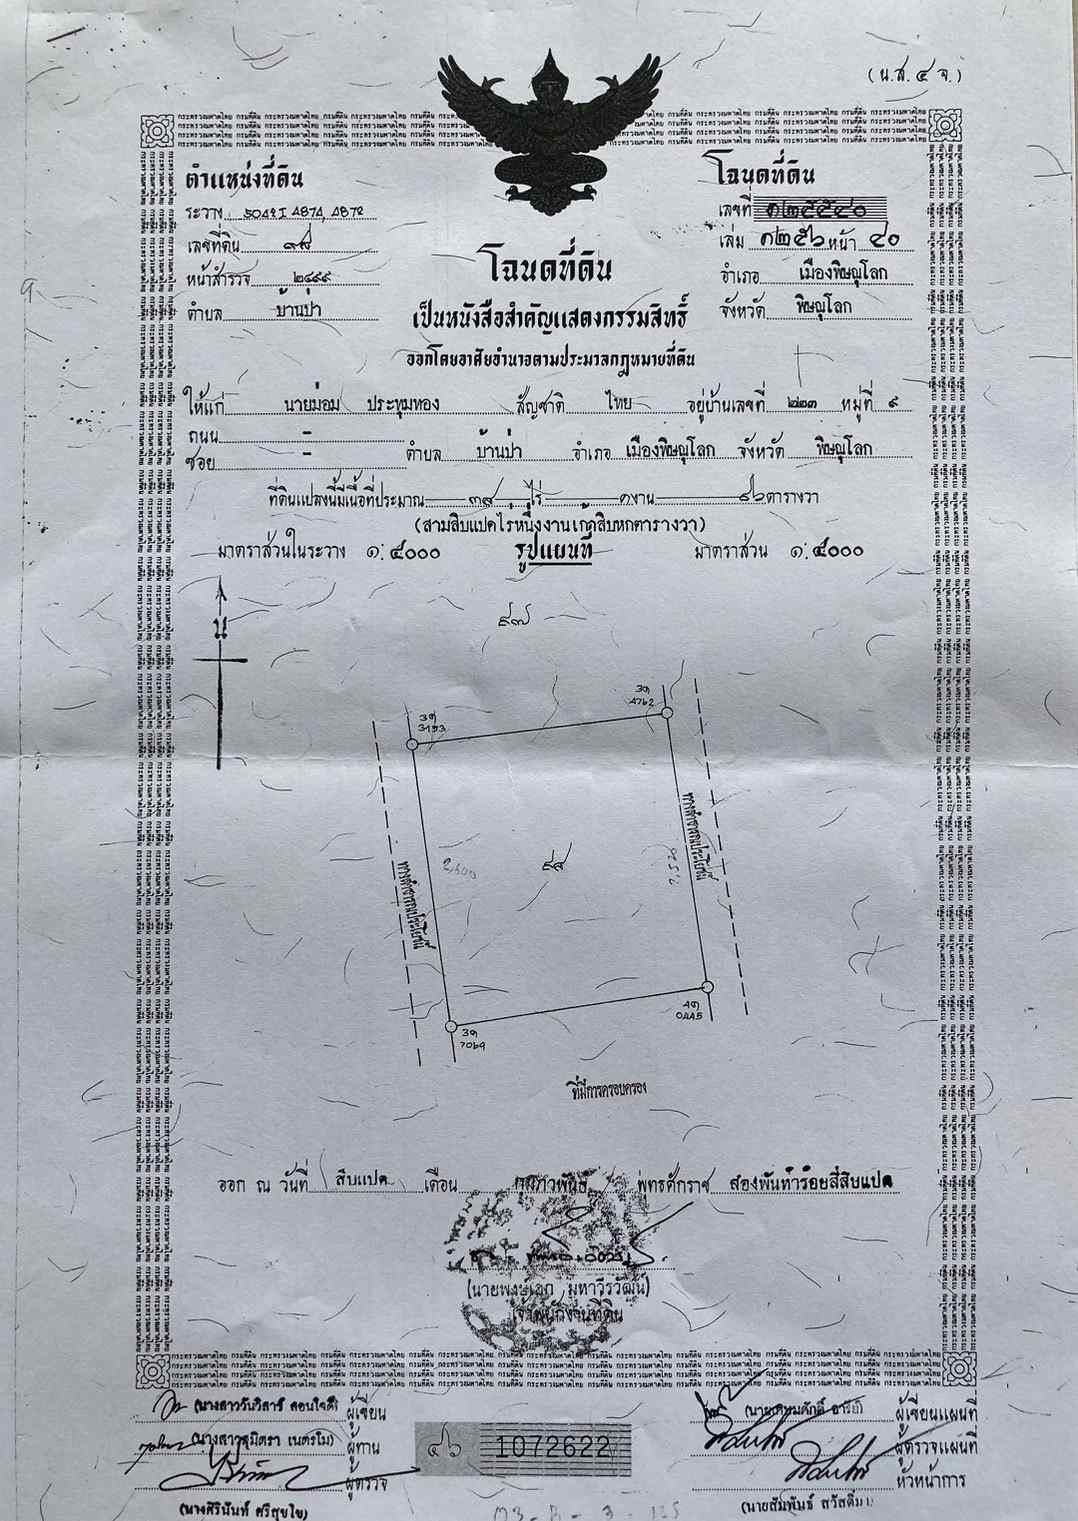 (น.ส. ๔ จ.)
ตำแหน่งที่ดิน
ระวาง 5042 I 4874, 4872
เลขที่ดิน ๙๘
หน้าสำรวจ ๒๔๙๙
ตำบล บ้านป่า
โฉนดที่ดิน
เลขที่ ๓๒๕๕๔๐
เล่ม ๓๒๕๖ หน้า ๔๐
อำเภอ เมืองพิษณุโลก
จังหวัด พิษณุโลก
โฉนดที่ดิน
เป็นหนังสือสำคัญแสดงกรรมสิทธิ์
ออกโดยอาศัยอำนาจตามประมวลกฎหมายที่ดิน
ให้แก่ นายม่อม ประทุมทอง สัญชาติ ไทย อยู่บ้านเลขที่ ๒๒๓ หมู่ที่ ๙
ถนน -
ซอย - ตำบล บ้านป่า อำเภอ เมืองพิษณุโลก จังหวัด พิษณุโลก
ที่ดินแปลงนี้มีเนื้อที่ประมาณ ๓๘ ไร่ ๑ งาน ๙๖ ตารางวา
(สามสิบแปดไร่หนึ่งงานเก้าสิบหกตารางวา)
มาตราส่วนในระวาง ๑:๔๐๐๐ รูปแผนที่ มาตราส่วน ๑:๔๐๐๐
น
๙๗
3ต
3193
3ต
4762
ทางสาธารณประโยชน์
2,600
๙๘
ทางสาธารณประโยชน์
3ต
7069
4ต
0445
ที่มีการครอบครอง
ออก ณ วันที่ สิบแปด เดือน กุมภาพันธ์ พุทธศักราช สองพันห้าร้อยสี่สิบแปด
(นายพงษ์เอก มหาวีรวัฒน์)
เจ้าพนักงานที่ดิน
(นางสาววันวิสาข์ คอนใจดี) ผู้เขียน
(นางสาวสุมิตรา เนตรโม) ผู้ทาน
ผู้ตรวจ
(นางศิรินันท์ ศรีสุขใย)
๔๖ 1072622
ผู้เขียนแผนที่
ผู้ตรวจแผนที่
หัวหน้าการ